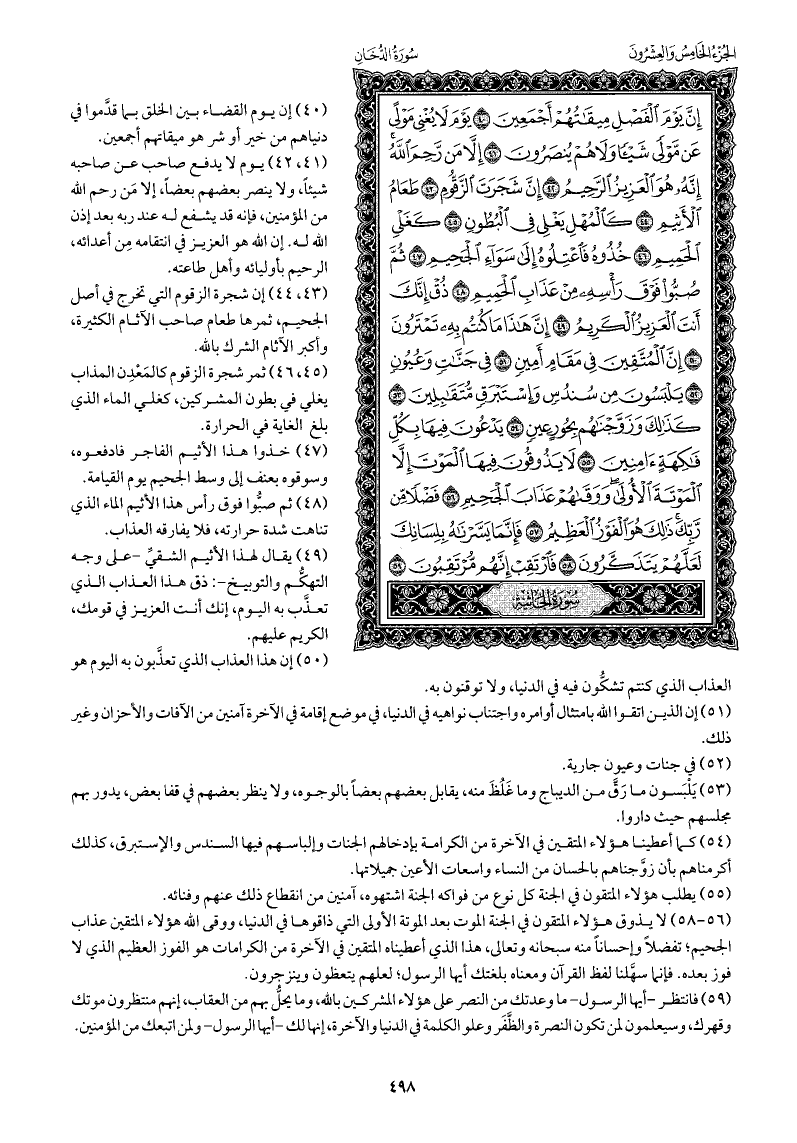 الجزء الخامس والعشرون
سورة الدخان
إِنَّ يَوْمَ الْفَصْلِ مِيقَاتُهُمْ أَجْمَعِينَ ٤٠ يَوْمَ لَا يُغْنِي مَوْلًى
عَن مَّوْلًى شَيْئًا وَلَا هُمْ يُنصَرُونَ ٤١ إِلَّا مَن رَّحِمَ اللَّهُ
إِنَّهُ هُوَ الْعَزِيزُ الرَّحِيمُ ٤٢ إِنَّ شَجَرَتَ الزَّقُّومِ ٤٣ طَعَامُ
الْأَثِيمِ ٤٤ كَالْمُهْلِ يَغْلِي فِي الْبُطُونِ ٤٥ كَغَلْيِ
الْحَمِيمِ ٤٦ خُذُوهُ فَاعْتِلُوهُ إِلَىٰ سَوَاءِ الْجَحِيمِ ٤٧ ثُمَّ
صُبُّوا فَوْقَ رَأْسِهِ مِنْ عَذَابِ الْحَمِيمِ ٤٨ ذُقْ إِنَّكَ
أَنتَ الْعَزِيزُ الْكَرِيمُ ٤٩ إِنَّ هَٰذَا مَا كُنتُم بِهِ تَمْتَرُونَ
٥٠ إِنَّ الْمُتَّقِينَ فِي مَقَامٍ أَمِينٍ ٥١ فِي جَنَّاتٍ وَعُيُونٍ
٥٢ يَلْبَسُونَ مِن سُندُسٍ وَإِسْتَبْرَقٍ مُّتَقَابِلِينَ ٥٣
كَذَٰلِكَ وَزَوَّجْنَاهُم بِحُورٍ عِينٍ ٥٤ يَدْعُونَ فِيهَا بِكُلِّ
فَاكِهَةٍ ءَامِنِينَ ٥٥ لَا يَذُوقُونَ فِيهَا الْمَوْتَ إِلَّا
الْمَوْتَةَ الْأُولَىٰ وَوَقَاهُمْ عَذَابَ الْجَحِيمِ ٥٦ فَضْلًا مِّن
رَّبِّكَ ذَٰلِكَ هُوَ الْفَوْزُ الْعَظِيمُ ٥٧ فَإِنَّمَا يَسَّرْنَاهُ بِلِسَانِكَ
لَعَلَّهُمْ يَتَذَكَّرُونَ ٥٨ فَارْتَقِبْ إِنَّهُم مُّرْتَقِبُونَ ٥٩
سورة الجاثية
(٤٠) إن يوم القضاء بين الخلق بما قدَّموا في
دنياهم من خير أو شر هو ميقاتهم أجمعين.
(٤١، ٤٢) يوم لا يدفع صاحب عن صاحبه
شيئاً، ولا ينصر بعضهم بعضاً، إلا مَن رحم الله
من المؤمنين، فإنه قد يشفع له عند ربه بعد إذن
الله له. إن الله هو العزيز في انتقامه مِن أعدائه،
الرحيم بأوليائه وأهل طاعته.
(٤٣، ٤٤) إن شجرة الزقوم التي تخرج في أصل
الجحيم، ثمرها طعام صاحب الآثام الكثيرة،
وأكبر الآثام الشرك بالله.
(٤٥، ٤٦) ثمر شجرة الزقوم كالمَعْدِن المذاب
يغلي في بطون المشركين، كغلي الماء الذي
بلغ الغاية في الحرارة.
(٤٧) خذوا هذا الأثيم الفاجر فادفعوه،
وسوقوه بعنف إلى وسط الجحيم يوم القيامة.
(٤٨) ثم صبُّوا فوق رأس هذا الأثيم الماء الذي
تناهت شدة حرارته، فلا يفارقه العذاب.
(٤٩) يقال لهذا الأثيم الشقيِّ -على وجه
التهكُّم والتوبيخ-: ذق هذا العذاب الذي
تعذَّب به اليوم، إنك أنت العزيز في قومك،
الكريم عليهم.
(٥٠) إن هذا العذاب الذي تعذَّبون به اليوم هو
العذاب الذي كنتم تشكُّون فيه في الدنيا، ولا توقنون به.
(٥١) إن الذين اتقوا الله بامتثال أوامره واجتناب نواهيه في الدنيا، في موضع إقامة في الآخرة آمنين من الآفات والأحزان وغير
ذلك.
(٥٢) في جنات وعيون جارية.
(٥٣) يَلْبَسون ما رَقَّ من الديباج وما غَلُظَ منه، يقابل بعضهم بعضاً بالوجوه، ولا ينظر بعضهم في قفا بعض، يدور بهم
مجلسهم حيث داروا.
(٥٤) كما أعطينا هؤلاء المتقين في الآخرة من الكرامة بإدخالهم الجنات وإلباسهم فيها السندس والإستبرق، كذلك
أكرمناهم بأن زوَّجناهم بالحسان من النساء واسعات الأعين جميلاتها.
(٥٥) يطلب هؤلاء المتقون في الجنة كل نوع من فواكه الجنة اشتهوه، آمنين من انقطاع ذلك عنهم وفنائه.
(٥٦-٥٨) لا يذوق هؤلاء المتقون في الجنة الموت بعد الموتة الأولى التي ذاقوها في الدنيا، ووقى الله هؤلاء المتقين عذاب
الجحيم؛ تفضلاً وإحساناً منه سبحانه وتعالى، هذا الذي أعطيناه المتقين في الآخرة من الكرامات هو الفوز العظيم الذي لا
فوز بعده. فإنما سهَّلنا لفظ القرآن ومعناه بلغتك أيها الرسول؛ لعلهم يتعظون وينزجرون.
(٥٩) فانتظر -أيها الرسول- ما وعدتك من النصر على هؤلاء المشركين بالله، وما يحلُّ بهم من العقاب، إنهم منتظرون موتك
وقهرك، وسيعلمون لمن تكون النصرة والظَّفَر وعلو الكلمة في الدنيا والآخرة، إنها لك -أيها الرسول- ولمن اتبعك من المؤمنين.
٤٩٨